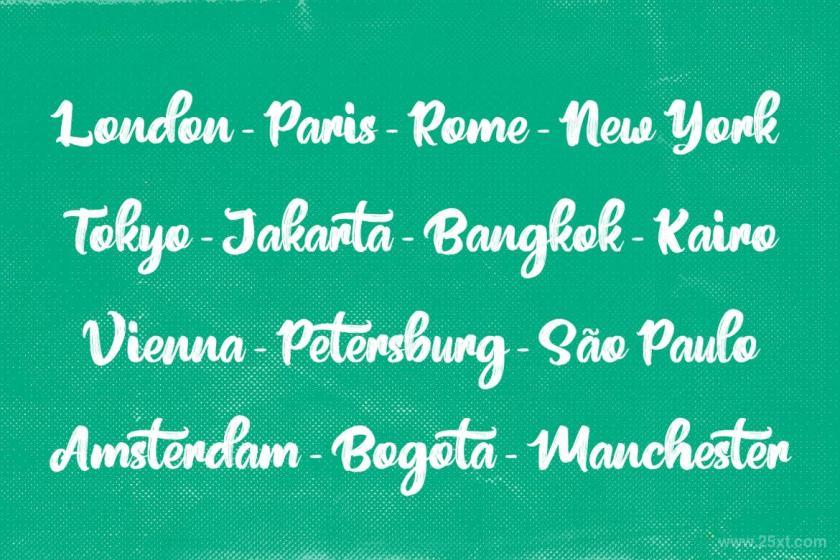 London - Paris - Rome - New York
Tokyo - Jakarta - Bangkok - Kairo
Vienna - Petersburg - São Paulo
Amsterdam - Bogota - Manchester
www.25xt.com